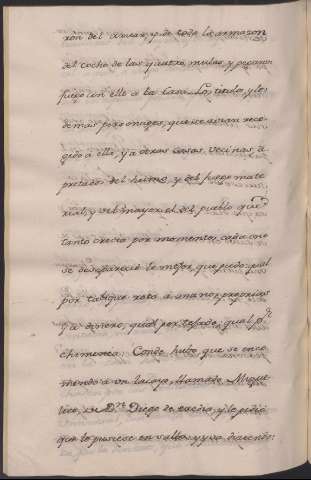 ron del azucar, y de toda la armazon
del coche de las quatro mulas, y pegaron
fuego con ello a la Casa. Lo titulo, y los
demas personages, que se avian reco-
gido a ella, y a otras casas vecinas, a-
pretados del humo, y del fuego mate-
rial, y del mayor el del pueblo que
tanto crecia por momentos, cada uno
se desaparecio lo mejor, que pudo: qual
por tabique roto a manos proprias
y a dinero, qual por tejado, qual por
chemenea. Conde hubo, que se enco-
mendo a un lacayo, llamado Migue-
lico, de Dn. Diego de, y le pidio
que lo pusiese en salvo, y yva diciendo: